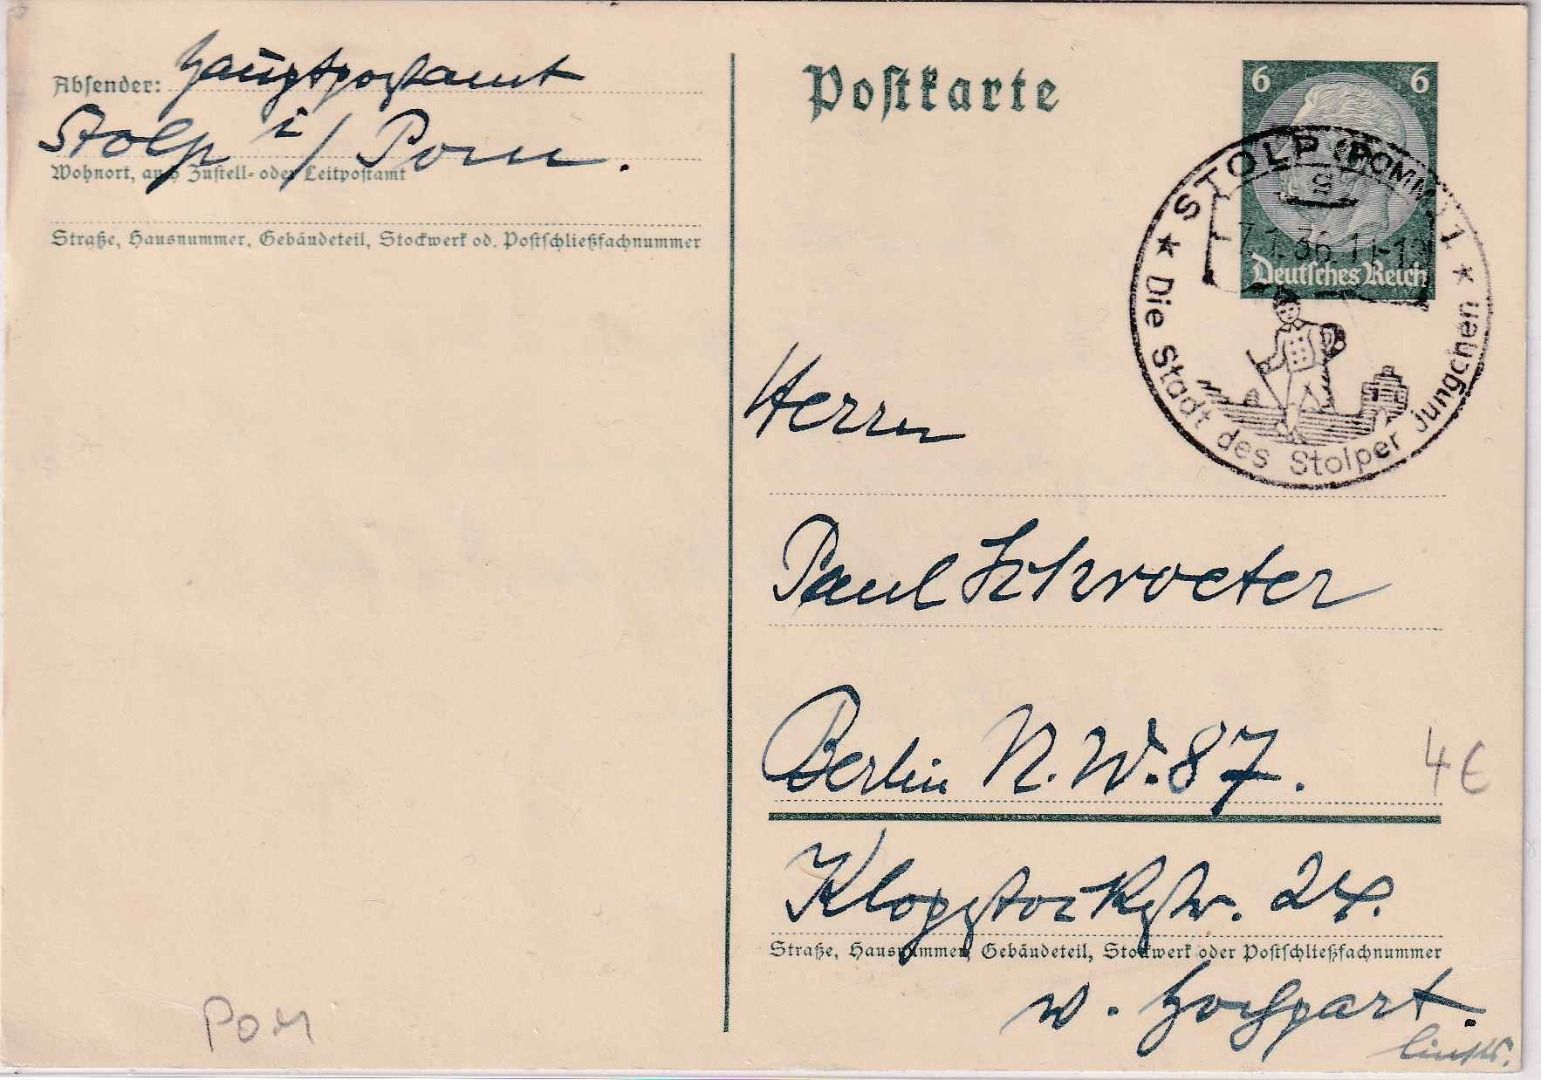 Absender: Hauptpostamt
Stolp i/Pom.
Wohnort, auch Zustell- oder Leitpostamt
Straße, Hausnummer, Gebäudeteil, Stockwerk od. Postschließfachnummer
Postkarte
6 6
Deutsches Reich
★ STOLP (POMM) 1 ★
g
7.1.36.11-12
Die Stadt des Stolper Jungchen
Herrn
Paul Schroeter
Berlin N.W. 87.
4€
Klopstockstr. 24.
Straße, Hausnummer, Gebäudeteil, Stockwerk oder Postschließfachnummer
w. Hochpart.
links.
POM